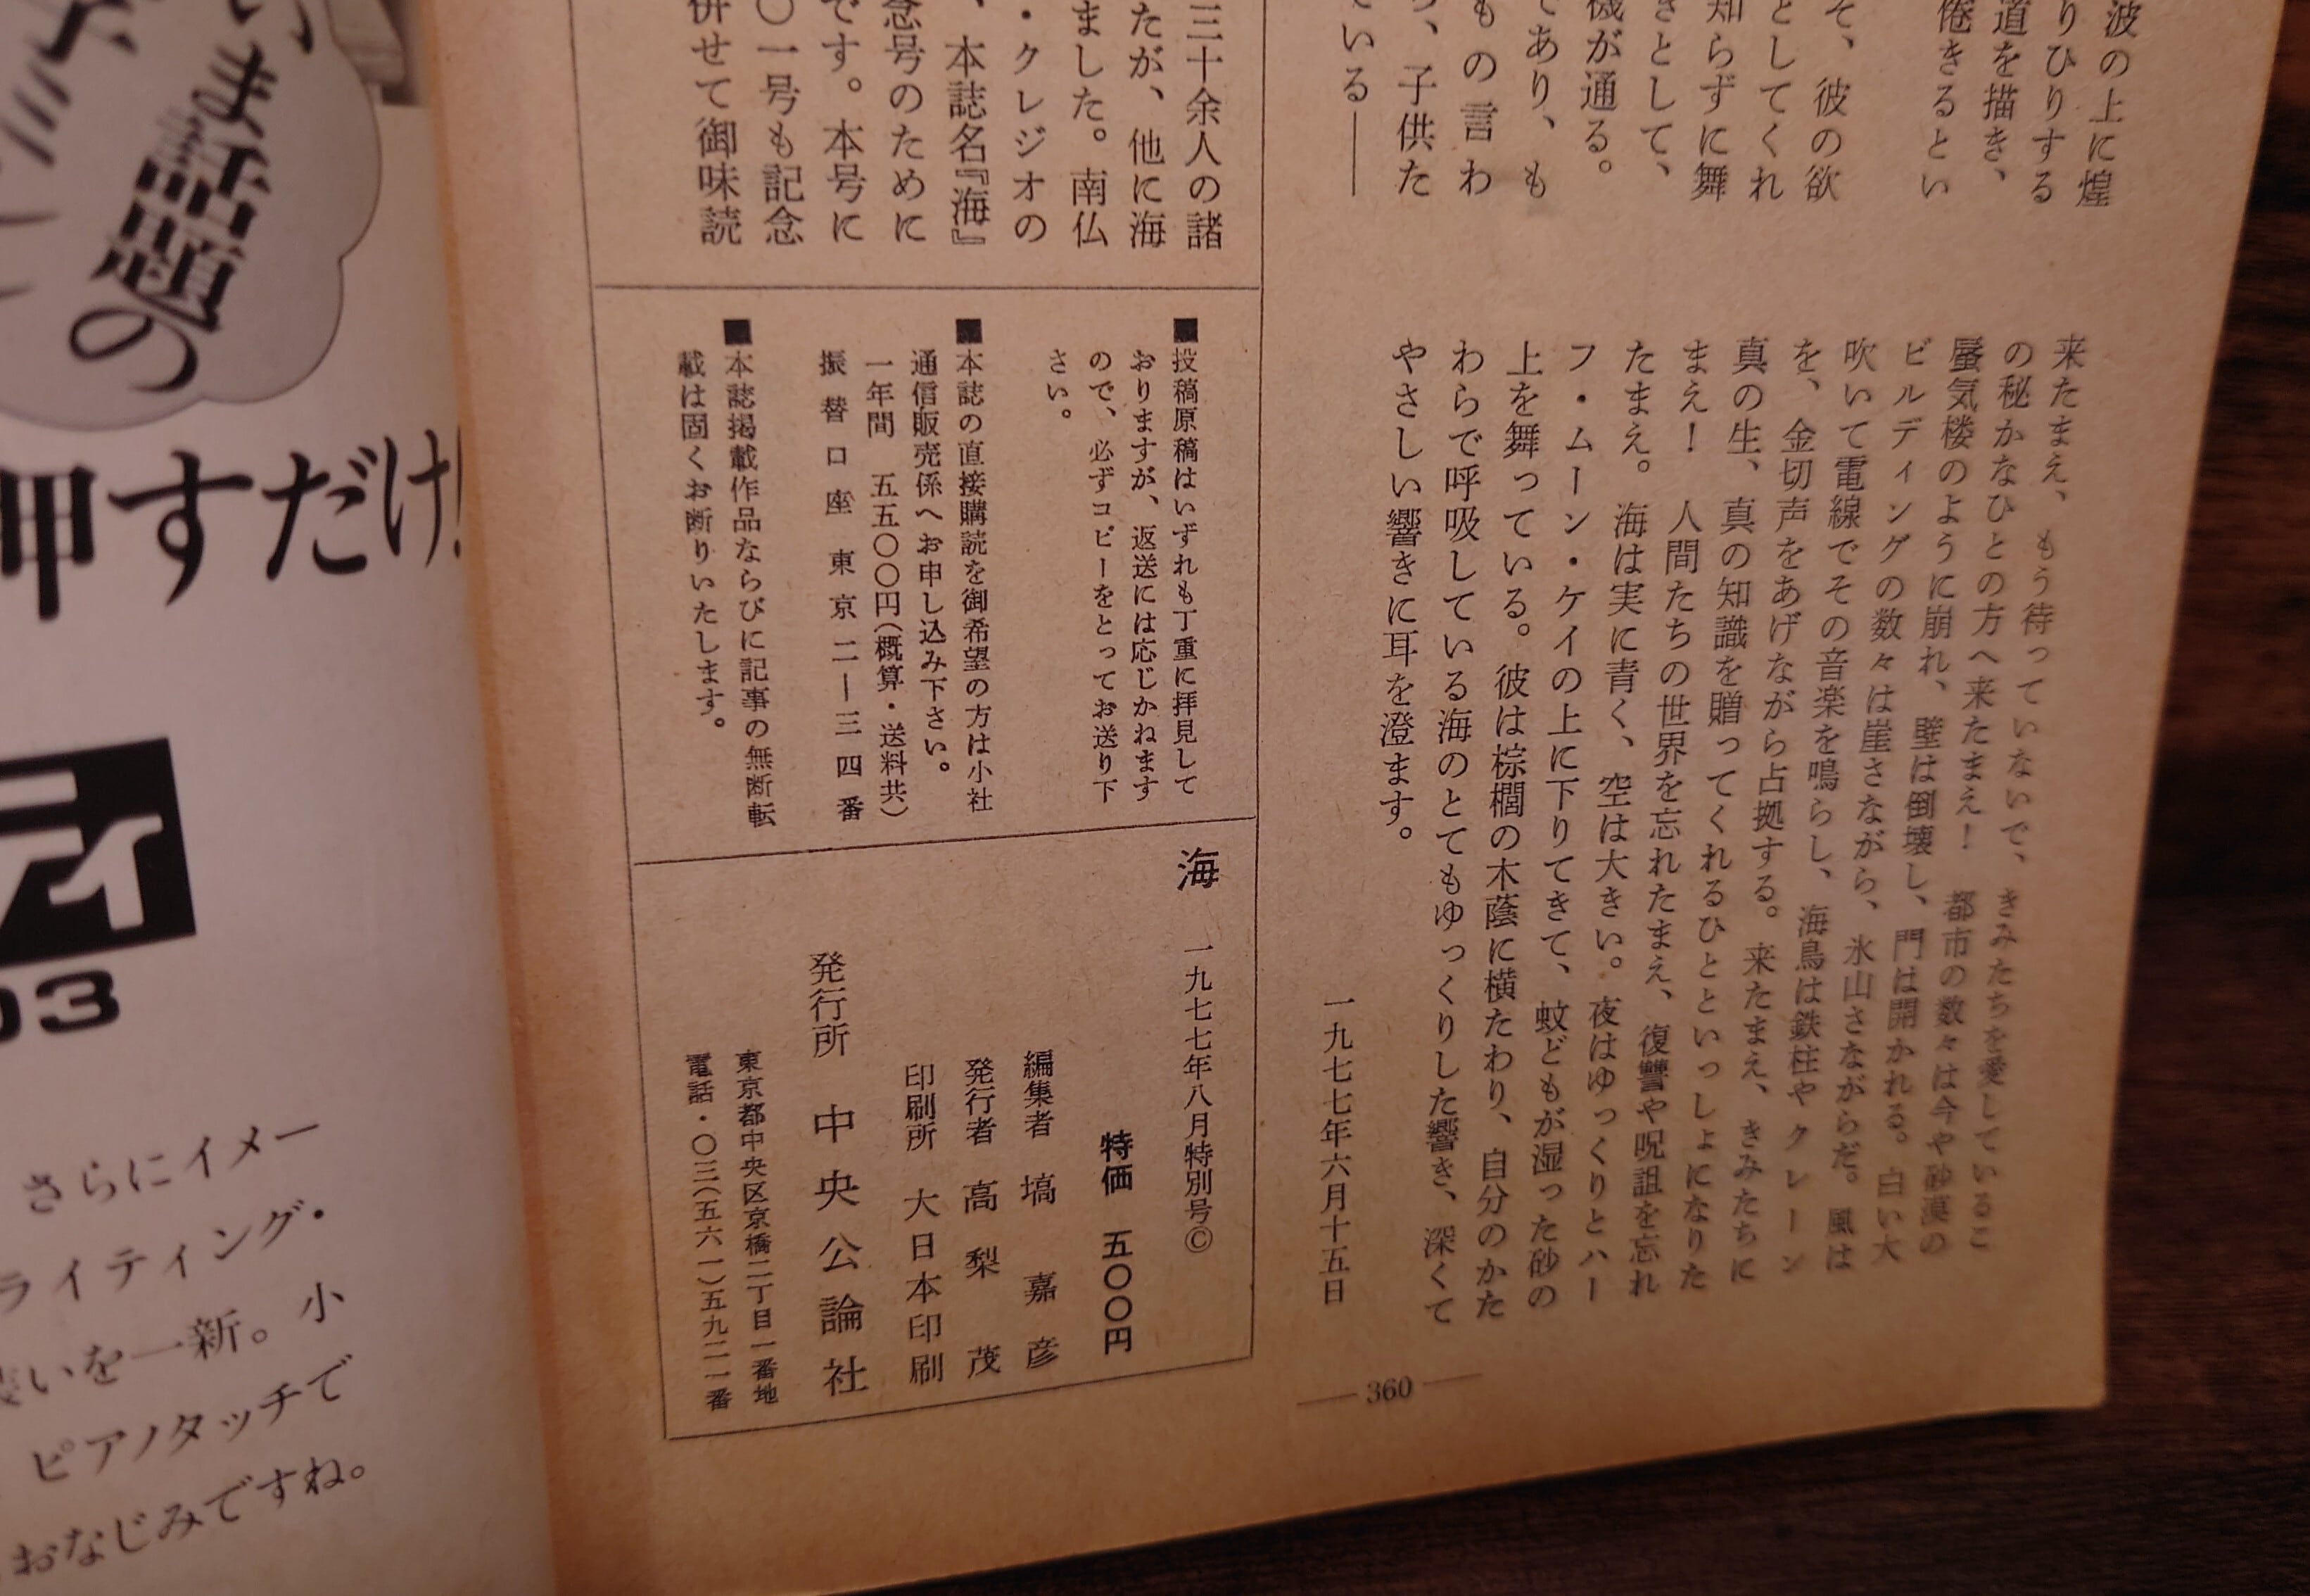 波の上に煌
りひりする
道を描き、
倦きるとい
そ、彼の欲
としてくれ
知らずに舞
きとして、
機が通る。
であり、も
もの言わ
、子供た
ている——
来たまえ、もう待っていないで、きみたちを愛しているこ
の秘かなひとの方へ来たまえ！　都市の数々は今や砂漠の
蜃気楼のように崩れ、壁は倒壊し、門は開かれる。白い大
ビルディングの数々は崖さながら、氷山さながらだ。風は
吹いて電線でその音楽を鳴らし、海鳥は鉄柱やクレーン
を、金切声をあげながら占拠する。来たまえ、きみたちに
真の生、真の知識を贈ってくれるひとといっしょになりた
まえ！　人間たちの世界を忘れたまえ、復讐や呪詛を忘れ
たまえ。海は実に青く、空は大きい。夜はゆっくりとハー
フ・ムーン・ケイの上に下りてきて、蚊どもが湿った砂の
上を舞っている。彼は棕櫚の木蔭に横たわり、自分のかた
わらで呼吸している海のとてもゆっくりした響き、深くて
やさしい響きに耳を澄ます。
一九七七年六月十五日
三十余人の諸
たが、他に海
ました。南仏
・クレジオの
、本誌名『海』
念号のために
です。本号に
〇一号も記念
併せて御味読
■投稿原稿はいずれも丁重に拝見して
おりますが、返送には応じかねます
ので、必ずコピーをとってお送り下
さい。
■本誌の直接購読を御希望の方は小社
通信販売係へお申し込み下さい。
一年間　五五〇〇円（概算・送料共）
振替口座　東京二—三四番
■本誌掲載作品ならびに記事の無断転
載は固くお断りいたします。
海　一九七七年八月特別号©
特価　五〇〇円
編集者　塙　嘉彦
発行者　高梨　茂
印刷所　大日本印刷
発行所　中央公論社
東京都中央区京橋二丁目一番地
電話・〇三（五六一）五九二一番
—360—
いま話題の
押すだけ!
ティ
03
さらにイメー
ライティング・
いを一新。小
ピアノタッチで
おなじみですね。